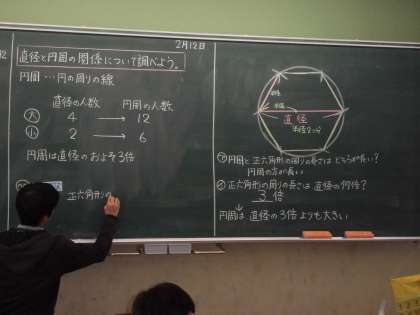 2月12日
直径と円周の関係について調べよう。
円周…円の周りの線
直径の人数 円周の人数
大 4 → 12
小 2 → 6
円周は直径のおよそ3倍
正六角形の
半径
直径
半径2つ分
㋐円周と正六角形の周りの長さはどちらが長い?
円周の方が長い
㋑正六角形の周りの長さは直径の何倍?
3倍
円周は直径の3倍よりも大きい